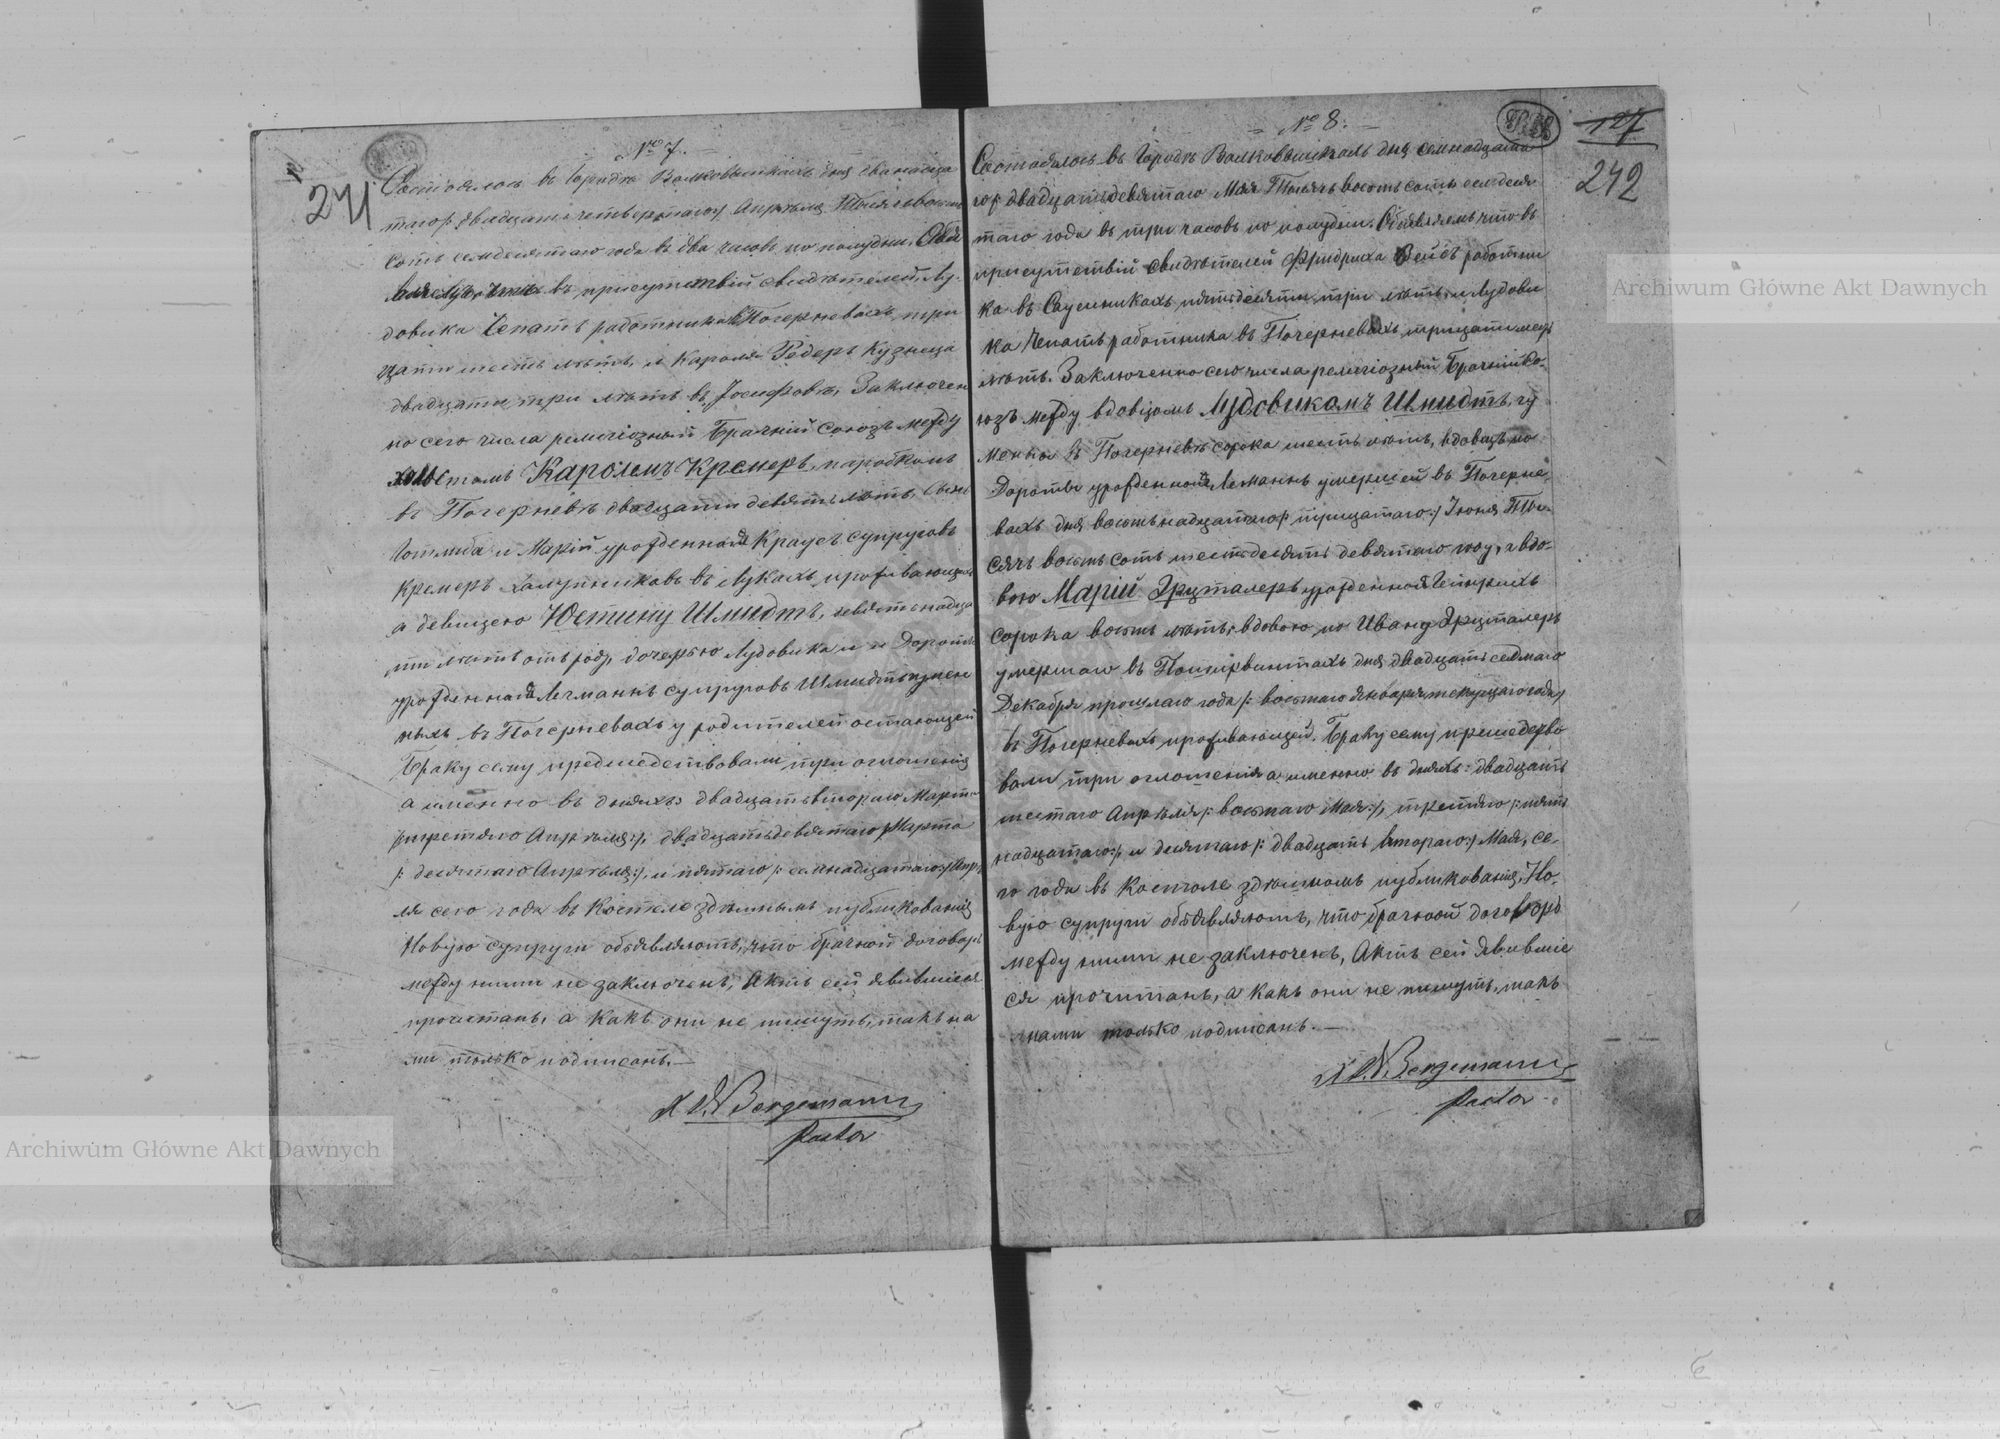 № 7.
241
Состоялось в Городѣ Волковышкахъ дня двѣнадца
таго /: двадцать четвертаго :/ Апрѣля Тысяча восемь
сотъ семдесятаго года въ два часа по полудни. Объя
вляемъ, что въ присутствій свидѣтелей, Лу-
довика Чепатъ работника въ Погерневахъ, три
цати шесть лѣтъ, и Кароля Редеръ Кузнеца
двадцати три лѣтъ въ Іосифовѣ, Заключен
но сего числа религіозный Брачній Союзъ между
холостымъ Каролемъ Кремеръ, паробкомъ
въ Погерневѣ двадцати девять лѣтъ, сыномъ
Готлиба и Марій урожденной Краузъ супруговъ
Кремеръ халупниковъ въ Лукахъ, проживающихъ
а девицею Юстину Шмидтъ, девятьнадца
ти лѣтъ отъ роду, дочерью Лудовика и Дороты
урожденной Леманнъ супруговъ Шмидтъ
ныхъ въ Погерневахъ у родителей остающей
Браку сему предшедствовали три оглошенія
а именно въ дняхъ: двадцать втораго Марта
/: третяго Апрѣля :/, двадцать девятаго Марта
/: десятаго Апрѣля :/, и пятаго /: семнадцатаго :/ Апрѣ
ля сего года въ Костеле здѣшнымъ публикованія
Новую супруги объявляютъ, что брачной договоръ
между ними не заключенъ, Актъ сей явившіеся
прочитанъ, а какъ они не пишутъ, такъ на
ми только подписанъ.—
Bergemann
Pastor
№ 8.
127
242
Состоялось въ Городѣ Волковышкахъ дня семнадцата
го /: двадцать девятаго Мая Тысячъ восемь сотъ семдеся
таго года въ три часовъ по полудни. Объявляемъ что въ
присутствій свидѣтелей Фридриха Вейсъ работни
ка въ Саусникахъ пятьдесяти три лѣтъ, и Лудови
ка Чепатъ работника въ Погерневахъ, трицати шесть
лѣтъ. Заключенно сего числа религіозный Брачній Со-
юзъ между вдовцомъ Лудовикомъ Шмидтъ, гу
менны въ Погерневѣ сорока шесть лѣтъ, вдовцъ по
Доротѣи урожденной Леманнъ умершей въ Погерне-
вахъ дня восемьнадцатаго /: трицатаго :/ Іюня Ты-
сячъ восемь сотъ шестьдесятъ девятаго году, а вдо-
вою Марій Эруталеръ урожденной Гейнрихъ
сорока восемь лѣтъ, вдовою по Ивану Эруталеръ
умершаго въ дня двадцать седмаго
Декабря прошлаго года /: восмаго января текущаго года /
въ Погерневахъ проживающей. Браку сему предшедство
вали три оглошенія а именно въ дняхъ: двадцать
шестаго Апрѣля /: восмаго Мая :/, третяго /: пять
надцатаго :/, и десятаго /: двадцать втораго :/ Мая, се-
го года въ Костеле здѣшномъ публикованія, Но-
вую супруги объявляютъ, что брачной договоръ
между ними не заключенъ, Актъ сей явившіе
ся прочитанъ, а какъ они не пишутъ, такъ
нами только подписанъ.—
Bergemann
Pastor
Archiwum Główne Akt Dawnych
Archiwum Główne Akt Dawnych